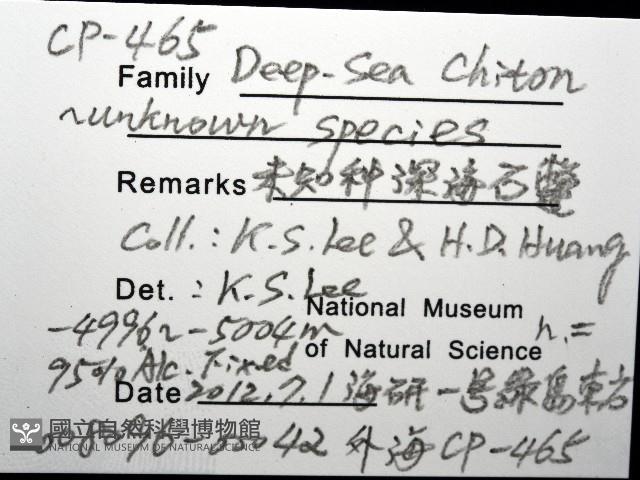 CP-465
Family Deep-Sea Chiton
~unknown species
Remarks 未知种深海石鱉
Coll.: K.S. Lee & H.D. Huang
Det.: K.S. Lee
National Museum
-4996~-5004m
n.=
of Natural Science
95% Alc. Fixed
Date 2012.7.1 海研一号綠島東方
外海 CP-465
國立自然科學博物館
NATIONAL MUSEUM OF NATURAL SCIENCE